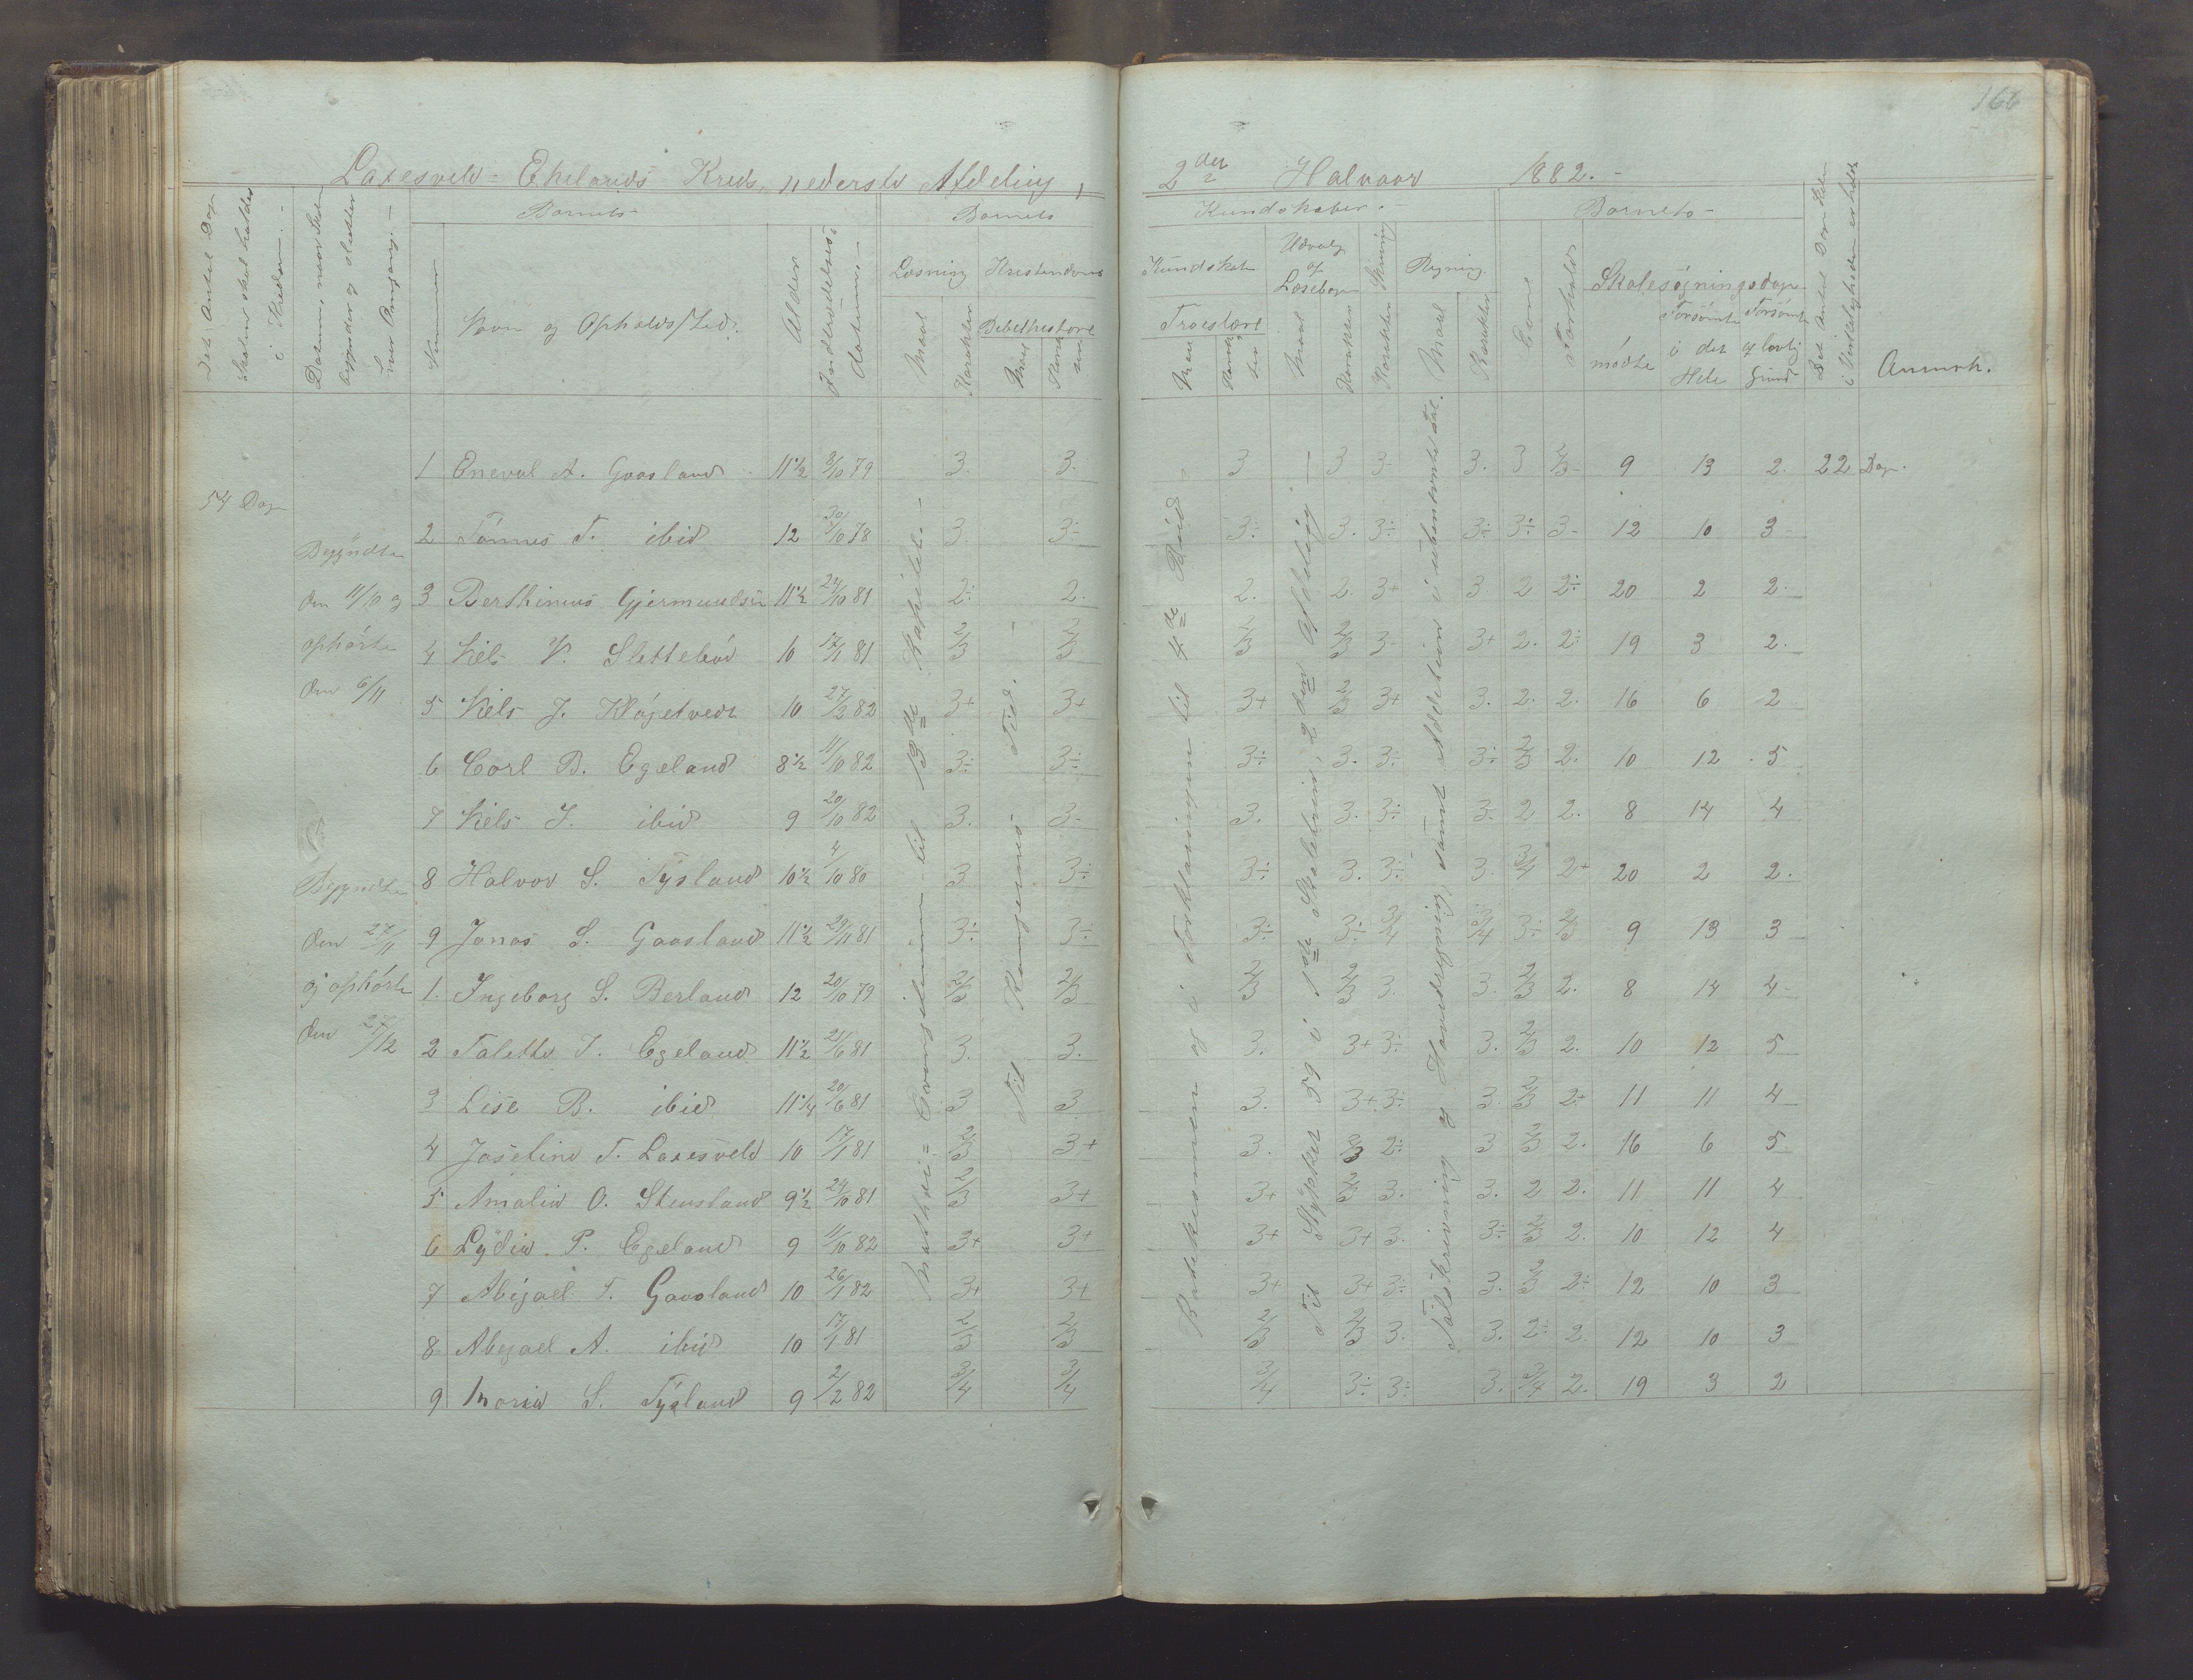 166
Laxesveld-Ekelands Kreds, nederste Afdeling,
2det Halvaar 1882.
Det Antal Dage Skolen skal holdes i Kredsen.
Datum, naar Skolen begynder og slutter hver Omgang.
Barnets
Nummer
Navn og Opholds Sted.
Alder
Indtrædelses Datum
Barnets
Læsning
Maal
Karakter
Kristendoms
Bibelhistorie
Maal
Karakter
Kundskaber.
Kundskab
Troeslære
Maal
Karakter
Udvalg af Læsebogen
Maal
Karakter
Skrivning
Karakter
Regning.
Maal
Karakter
Barnets
Evne
Forhold
Skolesøgningsdage
mødte
Forsømte i det Hele
Forsømte af lovlig Grund
Det Antal Dage Skolen i Virkeligheden er holdt
Anmærk.
54 Dage
Begyndte den 11/10 og ophørte den 6/11
Begyndte den 27/11 og ophørte den 27/12
Mathæi Evangelium til 13de Kapitel
Til Kongernes Tid.
Til Stykket 59 i 1ste Skoletrin, 2den Afdeling
Talskrivning og Hovedregning, samt Addition i ubenævnte Tal.
1 Eneval A. Gaasland 11½ 8/10 79 3. 3. 3 3 3- 3. 3 2/3 9 13 2. 22 Dage.
2 Tønnes T. ibid 12 30/10 78 3. 3÷ 3÷ 3. 3÷ 3÷ 3÷ 3- 12 10 3
3 Berthinius Gjermundsen 11½ 24/10 81 2÷ 2. 2. 2. 3+ 3. 2 2÷ 20 2 2
4 Niels V. Slettebø 10 17/1 81 2/3 2/3 2/3 2/3 3- 3+ 2. 2÷ 19 3 2.
5 Niels J. Kløgetvedt 10 27/2 82 3+ 3+ 3+ 2/3 3+ 3. 2. 2. 16 6 2
6 Carl B. Egeland 8½ 11/10 82 3÷ 3÷ 3÷ 3. 3÷ 3÷ 2/3 2. 10 12 5
7 Niels J. ibid 9 20/10 82 3. 3- 3. 3. 3÷ 3- 2 2. 8 14 4
8 Halvor S. Tysland 10½ 4/10 80 3 3÷ 3÷ 3. 3÷ 3. 3/4 2+ 20 2 2.
9 Jonas S. Gaasland 11½ 29/11 81 3÷ 3÷ 3÷ 3÷ 3/4 3/4 3÷ 2/3 9 13 3
1. Ingeborg S. Berland 12 20/10 79 2/3 2/3 2/3 2/3 3. 3. 2/3 2. 8 14 4
2 Talette J. Egeland 11½ 21/6 81 3. 3. 3. 3+ 3÷ 3. 2/3 2. 10 12 5
3 Lise B. ibid 11¼ 20/6 81 3 3 3. 3+ 3÷ 3. 2/3 2+ 11 11 4
4 Joseline T. Laxesveld 10 17/1 81 2/3 3+ 3. 2/3 2÷ 3 2/3 2. 16 6 5
5 Amalie O. Stensland 9½ 24/10 81 2/3 3+ 3+ 2/3 3. 3. 2 2. 11 11 4
6 Lydia P. Egeland 9 11/10 82 3+ 3+ 3+ 3+ 3. 3÷ 2/3 2. 10 12 4
7 Abigael T. Gaasland 10 26/1 82 3+ 3+ 3+ 3+ 3÷ 3. 2/3 2÷ 12 10 3
8 Abigael A. ibid 10 17/1 81 2/3 2/3 2/3 2/3 3. 3. 2÷ 2. 12 10 3
9 Maria S. Tysland 9 2/2 82 3/4 3/4 3/4 3÷ 3÷ 3. 3/4 2. 19 3 2